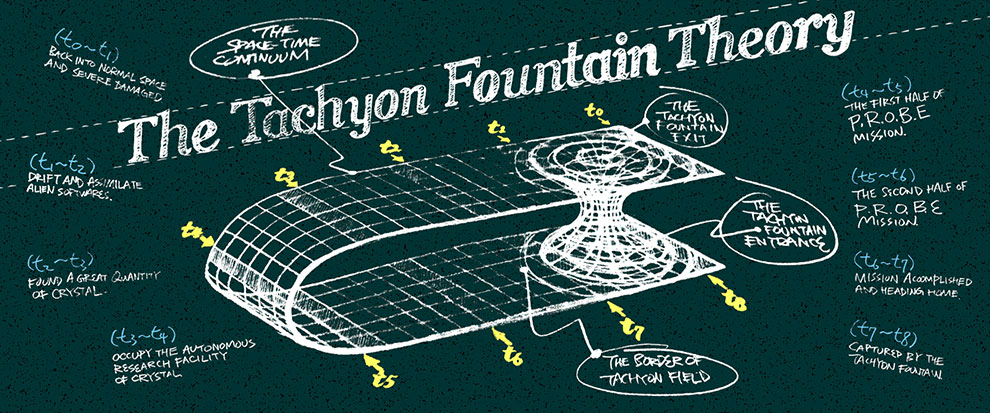 The Tachyon Fountain Theory
THE
SPACE-TIME
CONTINUUM
(t0~t1)
BACK INTO NORMAL SPACE
AND SEVERE DAMAGED
(t1~t2)
DRIFT AND ASSIMILATE
ALIEN SOFTWARES.
(t2~t3)
FOUND A GREAT QUANTITY
OF CRYSTAL.
(t3~t4)
OCCUPY THE AUTONOMOUS
RESEARCH FACILITY
OF CRYSTAL
t0
t1
t2
t3
t4
t5
t6
t7
t8
THE
TACHYON
FOUNTAIN
EXIT
THE
TACHYIN
FOUNTAIN
ENTRANCE
THE BORDER OF
TACHYON FIELD
(t4~t5)
THE FIRST HALF OF
P.R.O.B.E
MISSION.
(t5~t6)
THE SECOND HALF OF
P.R.O.B.E
MISSION.
(t6~t7)
MISSION ACOMPLISHED
AND HEADING HOME.
(t7~t8)
CAPTURED BY THE
TACHYON FOUNTAIN.